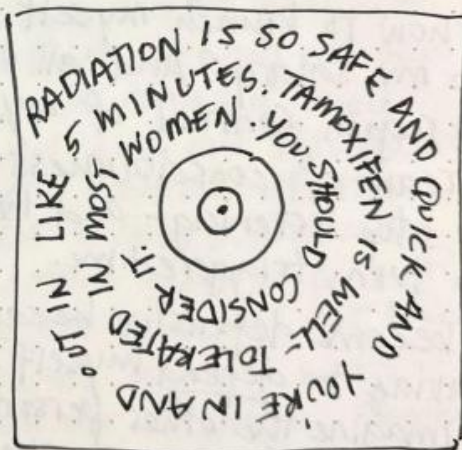 RADIATION IS SO SAFE AND QUICK AND YOU'RE IN AND OUT IN LIKE 5 MINUTES. TAMOXIFEN IS WELL-TOLERATED IN MOST WOMEN. YOU SHOULD CONSIDER IT.